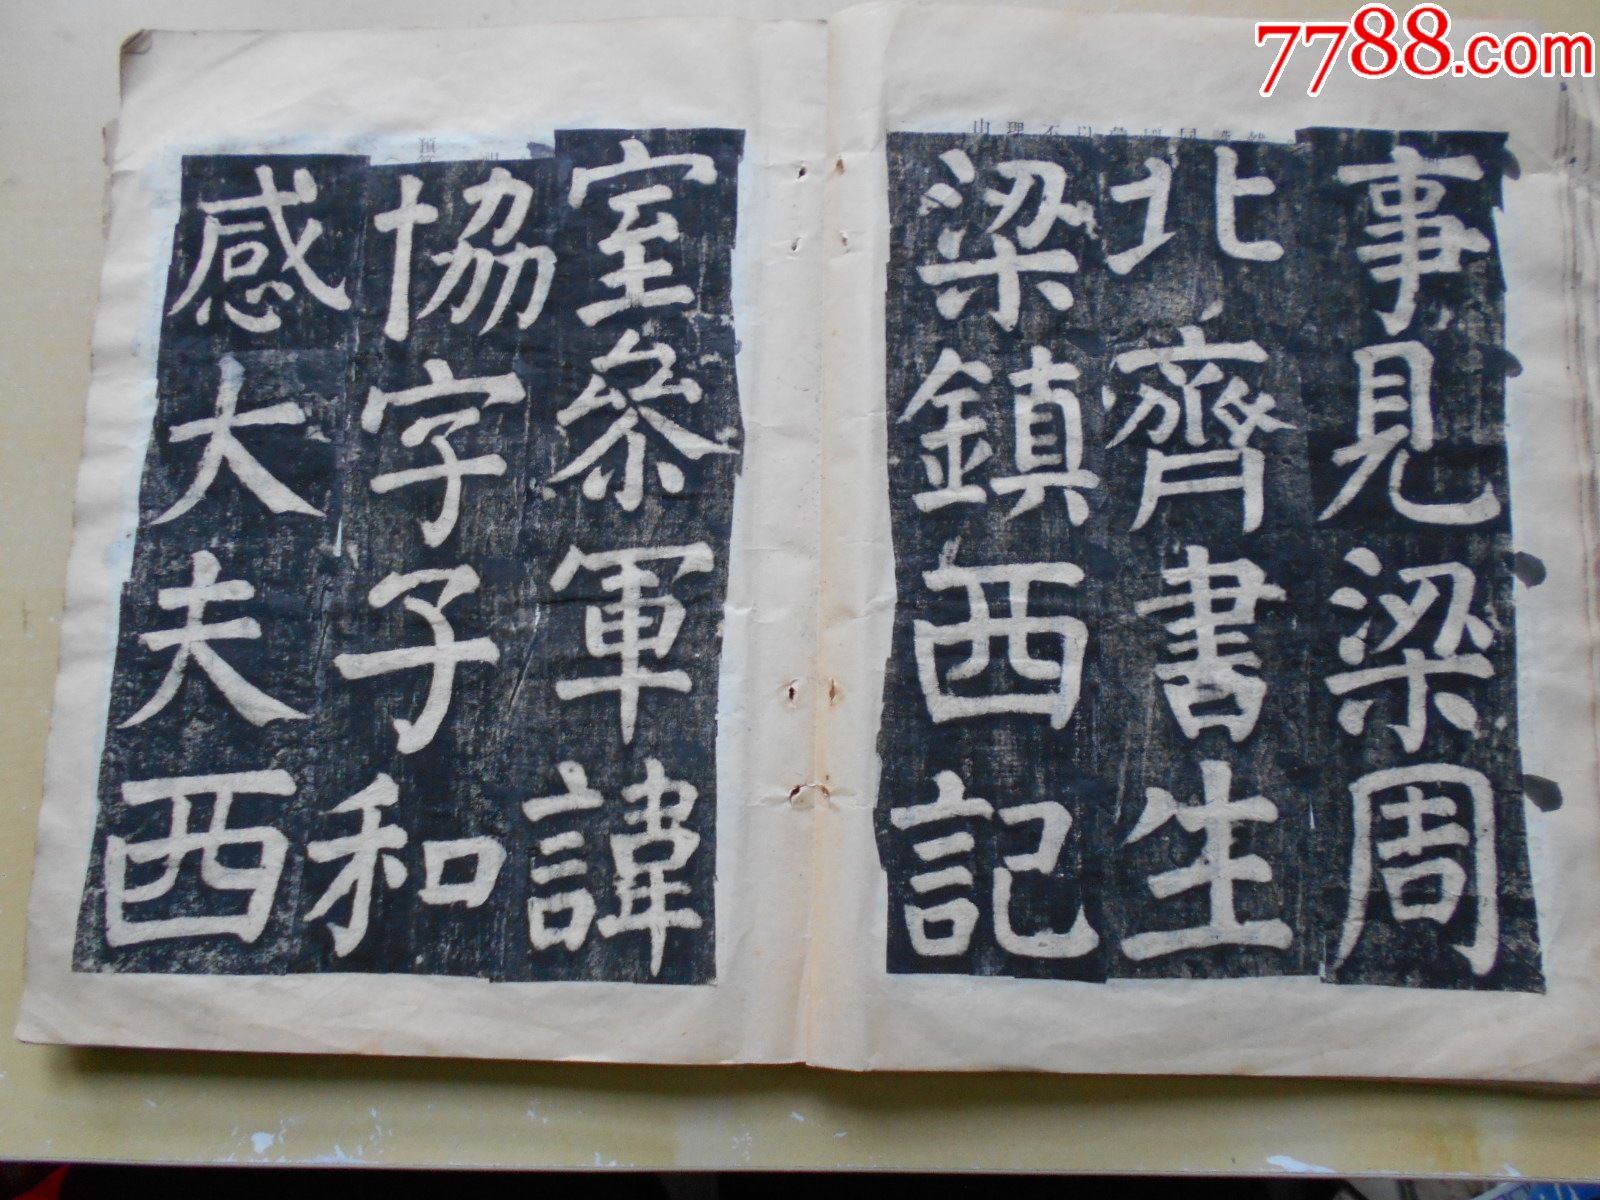 7788.com
事見梁周
北齊書生
梁鎮西記
室參軍諱
協字子和
感大夫西